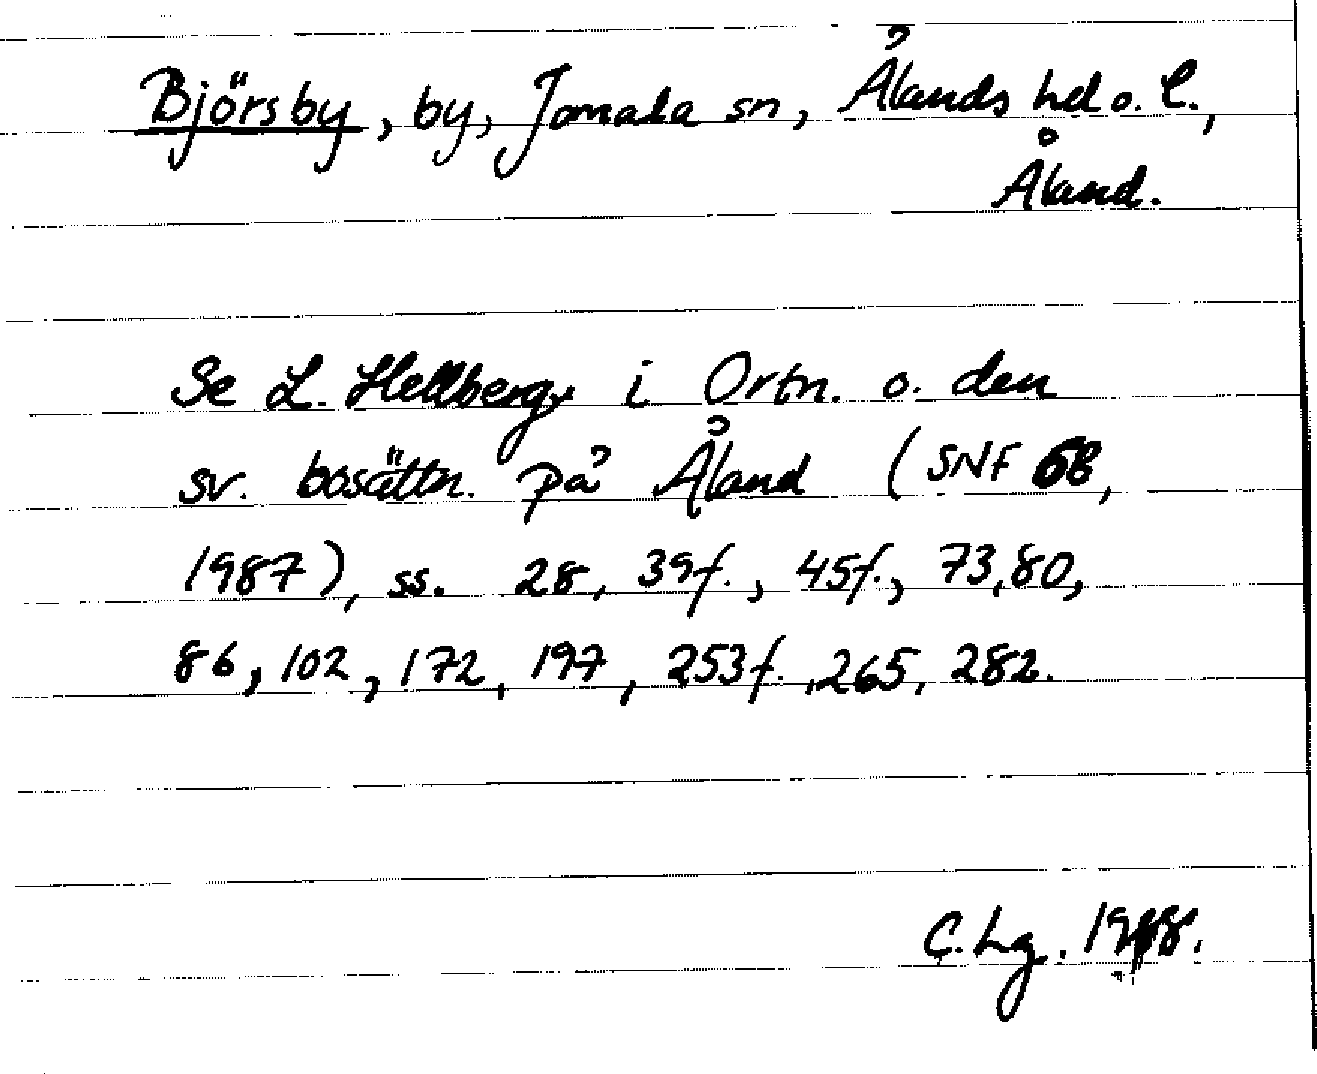 Björsby, by, Jomala sn, Ålands hd o. l.,
Åland.
Se L. Hellberg i Ortn. o. den
sv. bosättn. på Åland (SNF 68,
1987), ss. 28, 39f., 45f., 73, 80,
86, 102, 172, 197, 253f., 265, 282.
C. Lg. 1988.